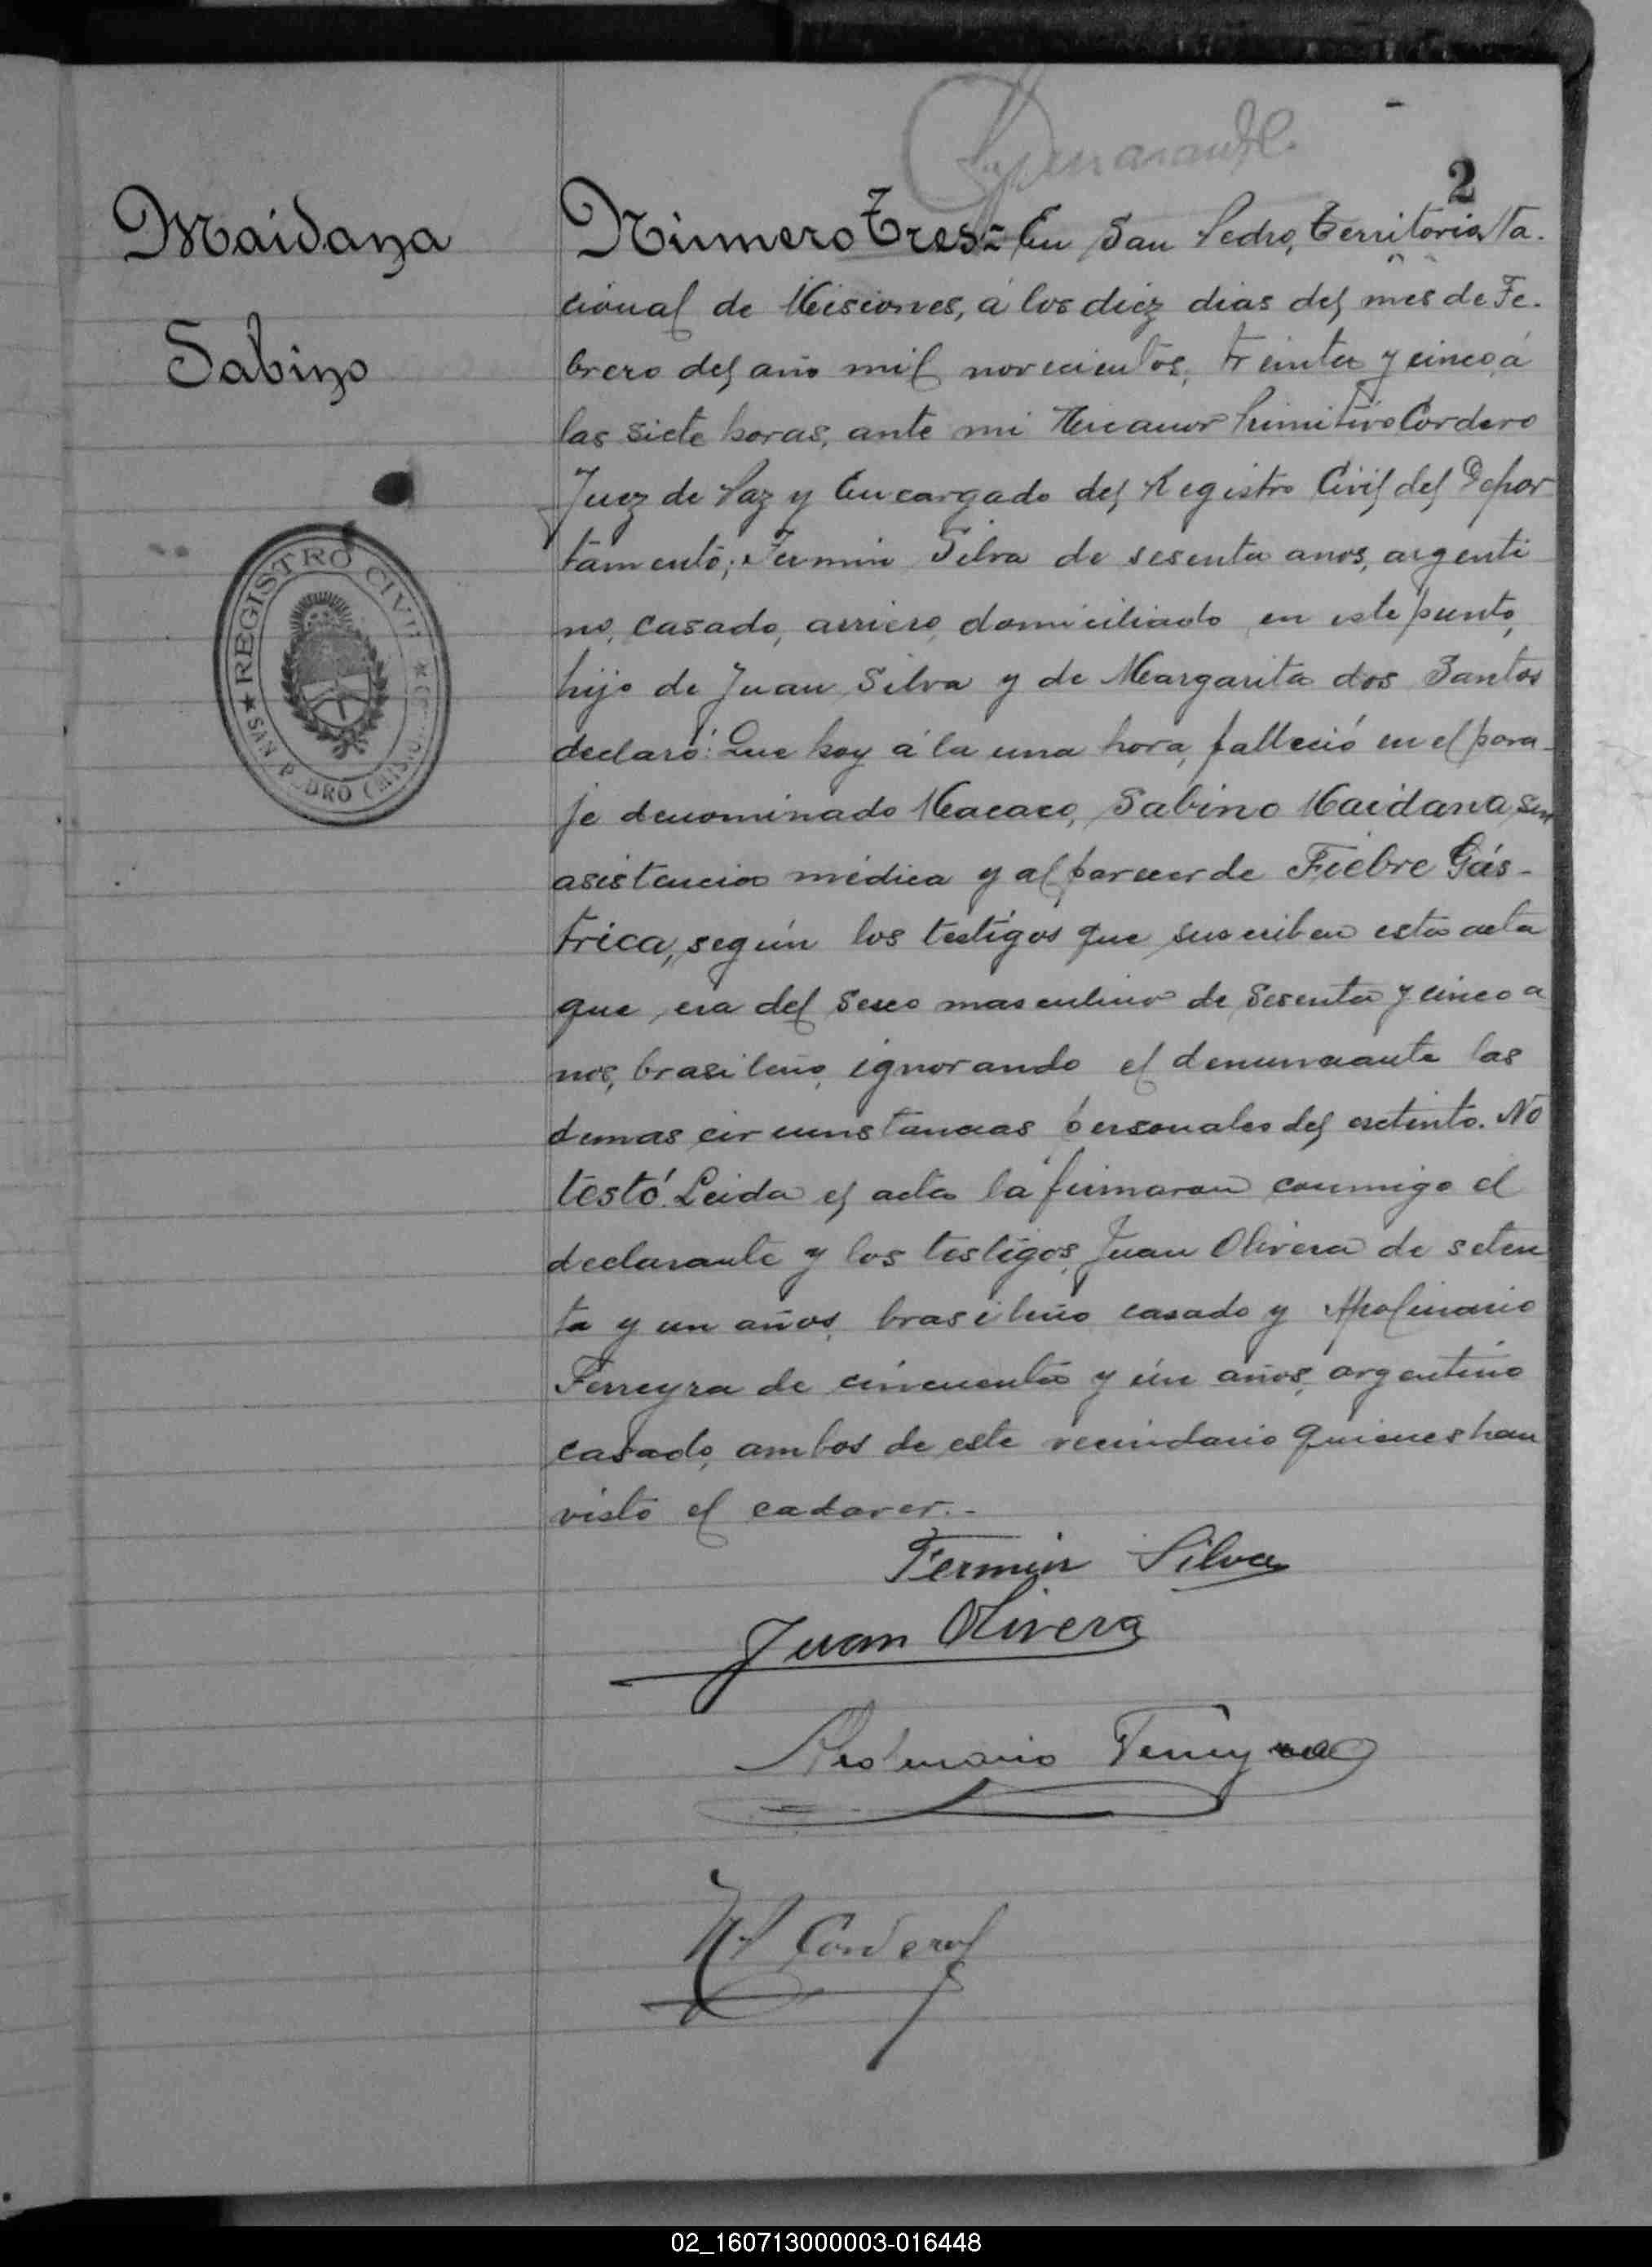 2
Maidana
Sabino
REGISTRO CIVIL
SAN PEDRO (MISIONES)
Número Tres = En San Pedro, Territorio Na-
cional de Misiones, á los diez dias del mes de Fe-
brero del año mil novecientos, treinta y cinco, á
las siete horas, ante mi Nicanor Primitivo Cordero
Juez de Paz y Encargado del Registro Civil del Depar
tamento; Fermin Silva de sesenta anos, argenti
no, casado, arriero, domiciliado en este punto,
hijo de Juan Silva y de Margarita dos Santos
declaró: Que hoy á la una hora, falleció en el para-
je denominado Macaco, Sabino Maidana, sin
asistencia médica y al parecer de Fiebre Gás-
trica, según los testigos que suscriben esta acta
que era del sexo masculino de sesenta y cinco a
nos, brasileño, ignorando el denunciante las
demas circumstancias personales del extinto. No
testó. Leida el acta la firmaron conmigo el
declarante y los testigos, Juan Olivera de seten
ta y un años, brasileño casado y Apolinario
Ferreyra de cincuenta y ún años, argentino
casado, ambos de este vecindario quienes han
visto el cadaver.-
Fermin Silva
Juan Olivera
Apolinario Ferreyra
NP Cordero
02_160713000003-016448